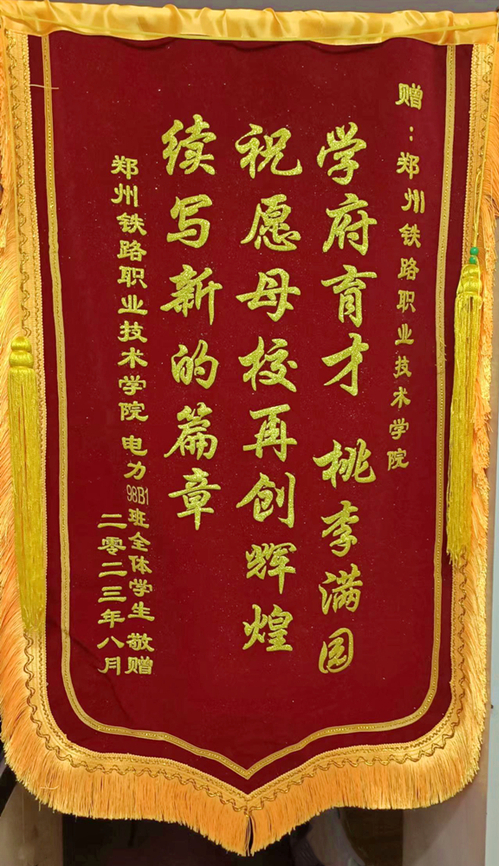 赠：郑州铁路职业技术学院
学府育才 桃李满园
祝愿母校再创辉煌
续写新的篇章
郑州铁路职业技术学院 电力98B1班全体学生 敬赠
二零二三年八月